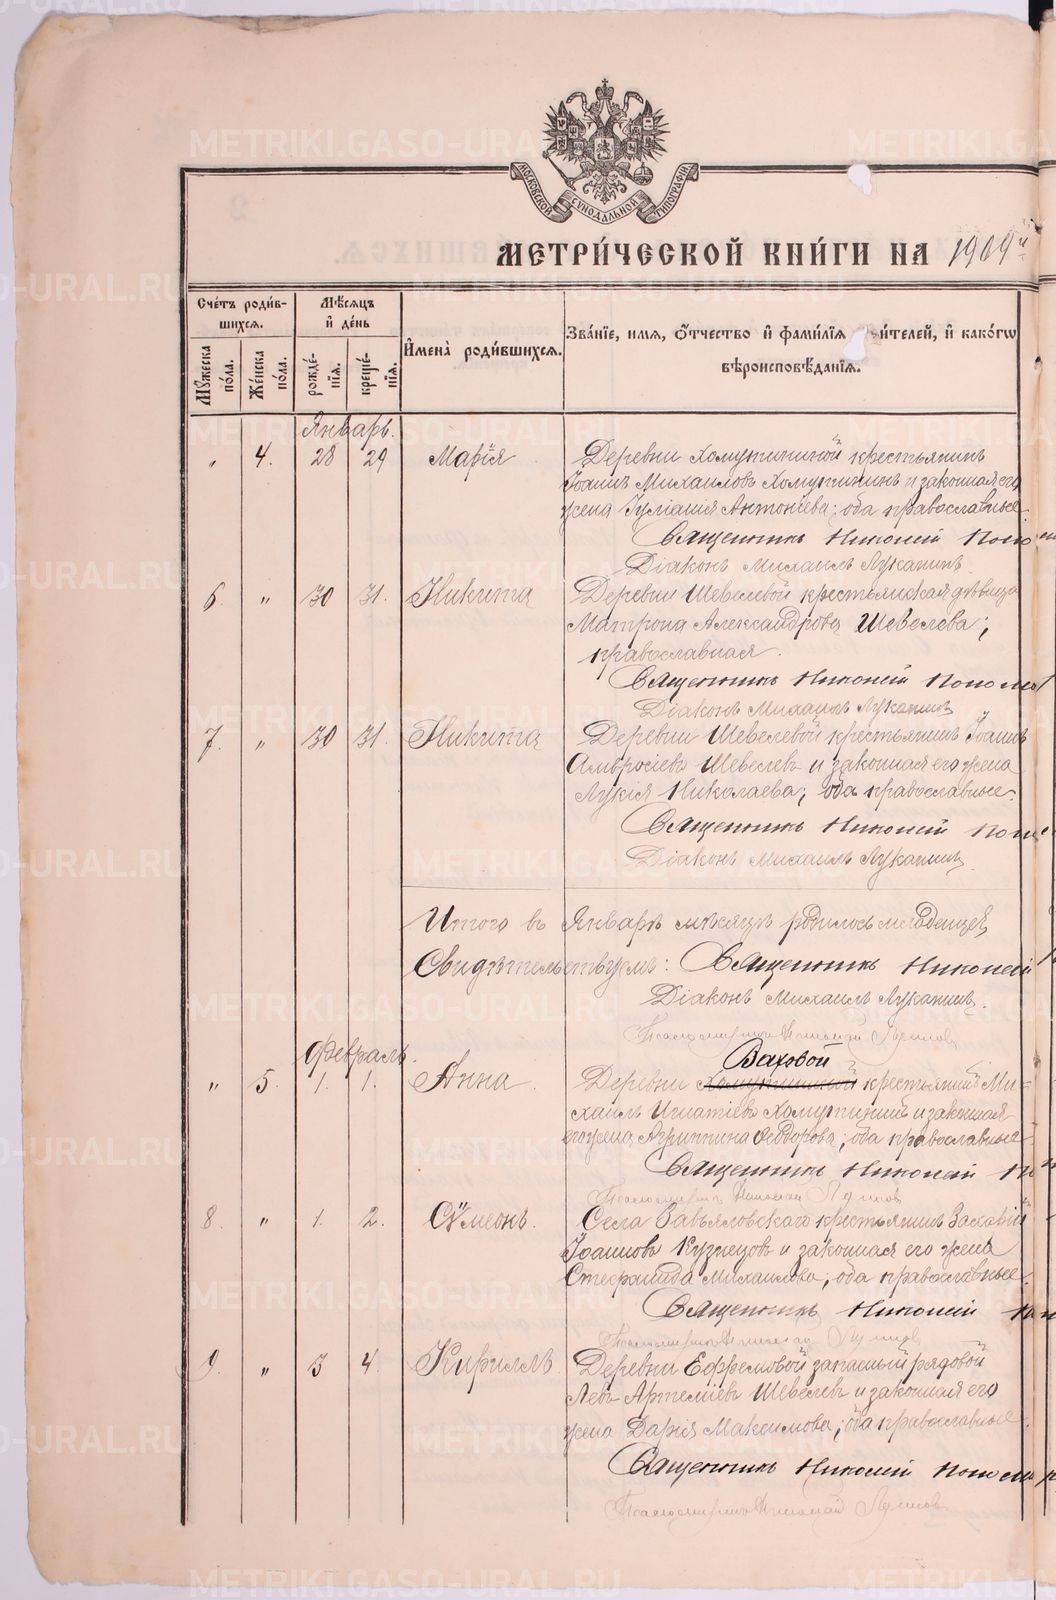 МОСКОВСКОЙ СѴНОДАЛЬНОЙ ТИПОГРАФІИ
МЕТРИ́ЧЕСКОЙ КНИ́ГИ НА 1909
Счётъ роди́вшихсѧ.
Мѣ́сѧцъ и́ де́нь
И҆мена̀ роди́вшихсѧ.
Зва́нїе, имѧ, ѻтчество и фами́лїѧ роди́телей, и како́гѡ
вѣроисповѣ́данїѧ.
Мꙋ́жеска по́ла.
Же́нска по́ла.
рожде́нїѧ.
креще́нїѧ.
Январь.
" 4. 28 29 Марія Деревни Хомутининой крестьянинъ
Іоаннъ Михаиловъ Хомутининъ и законная его
жена Іуліанія Антоніева; оба православные.
Священникъ Николай
Діаконъ Михаилъ Луканинъ.
6. " 30 31. Никита Деревни Шевелевой крестьянская дѣвица
Матрона Александрова Шевелева;
православная.
Священникъ Николай
Діаконъ Михаилъ Луканинъ
7. " 30 31. Никита Деревни Шевелевой крестьянинъ Іоаннъ
Амвросіевъ Шевелевъ и законная его жена
Лукія Николаева; оба православные.
Священникъ Николай
Діаконъ Михаилъ Луканинъ
Итого въ Январѣ мѣсяцѣ родилось младенцевъ
Свидѣтельствуемъ: Священникъ Николай
Діаконъ Михаилъ Луканинъ.
Псаломщикъ Николай
Февраль.
Ваховой
" 5. 1. 1. Анна. Деревни Хомутининой крестьянинъ Ми-
хаилъ Игнатіевъ Хомутининъ и законная
его жена Агриппина Ѳеодорова; оба православные.
Священникъ Николай
Псаломщикъ Николай
8. " 1. 2. Сѵмеонъ. Села Завьяловскаго крестьянинъ
Іоанновъ Кузнецовъ и законная его жена
Стефанида Михаилова; оба православные.
Священникъ Николай
Псаломщикъ Николай
9. " 3 4. Кириллъ. Деревни Ефремовой запасный рядовой
Левъ Артеміевъ Шевелевъ и законная его
жена Дарія Максимова; оба православные.
Священникъ Николай
Псаломщикъ Николай
METRIKI.GASO-URAL.RU